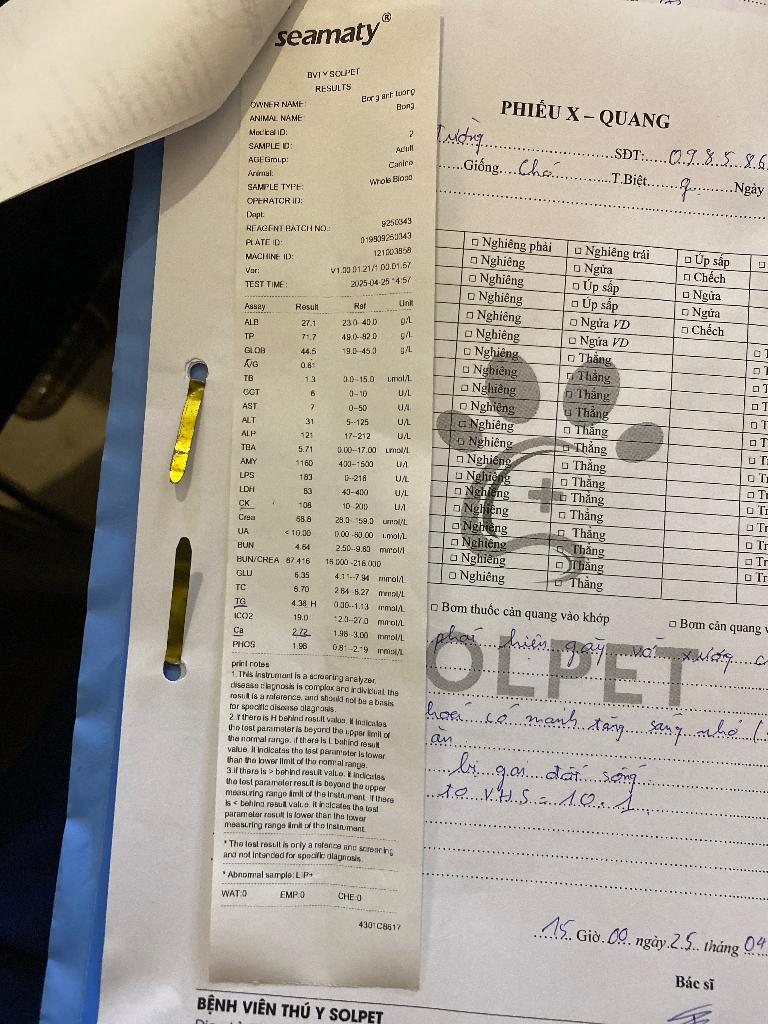 seamaty®
BVTY SOLPET
RESULTS
OWNER NAME: Bong anh tuong
ANIMAL NAME: Bong
Medical ID:
SAMPLE ID: 2
AGEGroup: Adult
Animal: Canine
SAMPLE TYPE: Whole Blood
OPERATOR ID:
Dept:
REAGENT BATCH NO.: 9250343
PLATE ID: 019809250343
MACHINE ID: 121003858
Ver: V1.00.01.21/1.00.01.57
TEST TIME: 2025-04-25 14:57
Assay Result Ref Unit
ALB 27.1 23.0--40.0 g/L
TP 71.7 49.0--82.0 g/L
GLOB 44.5 19.0--45.0 g/L
A/G 0.61
TB 1.3 0.0--15.0 umol/L
GGT 6 0--10 U/L
AST 7 0--50 U/L
ALT 31 5--125 U/L
ALP 121 17--212 U/L
TBA 5.71 0.00--17.00 umol/L
AMY 1160 400--1500 U/l
LPS 183 0--216 U/L
LDH 63 40--400 U/L
CK 108 10--200 U/l
Crea 68.8 28.0--159.0 umol/L
UA < 10.00 0.00--60.00 umol/L
BUN 4.64 2.50--9.60 mmol/L
BUN/CREA 67.416 16.000--218.000
GLU 6.35 4.11--7.94 mmol/L
TC 6.70 2.84--8.27 mmol/L
TG 4.38 H 0.00--1.13 mmol/L
tCO2 19.0 12.0--27.0 mmol/L
Ca 2.72 1.98--3.00 mmol/L
PHOS 1.98 0.81--2.19 mmol/L
print notes
1.This instrument is a screening analyzer,
disease diagnosis is complex and individual, the
result is a reference, and should not be a basis
for specific disease diagnosis.
2.if there is H behind result value, it indicates
the test parameter is beyond the upper limit of
the normal range. if there is L behind result
value. It indicates the test parameter is lower
than the lower limit of the normal range.
3.if there is > behind result value, it indicates
the test parameter result is beyond the upper
measuring range limit of the instrument. if there
is < behind result value, it indicates the test
parameter result is lower than the lower
measuring range limit of the instrument.
* The test result is only a refence and screening
and not intended for specific diagnosis.
* Abnormal sample: LIP+
WAT:0 EMP:0 CHE:0
4301C8617
PHIẾU X – QUANG
Tường SĐT: 098586
Giống Chó T.Biệt ♀ Ngày
□ Nghiêng phải □ Nghiêng trái □ Úp sấp □
□ Nghiêng □ Ngửa □ Chếch
□ Nghiêng □ Úp sấp □ Ngửa
□ Nghiêng □ Úp sấp □ Ngửa
□ Nghiêng □ Ngửa VD □ Chếch
□ Nghiêng □ Ngửa VD
□ Nghiêng □ Thẳng □ T
□ Nghiêng □ Thẳng □ T
□ Nghiêng □ Thẳng □ T
□ Nghiêng □ Thẳng □ T
□ Nghiêng □ Thẳng □ T
□ Nghiêng □ Thẳng □ T
□ Nghiêng □ Thẳng □ T
□ Nghiêng □ Thẳng □ T
□ Nghiêng □ Thẳng □ T
□ Nghiêng □ Thẳng □ Tr
□ Nghiêng □ Thẳng □ Tr
□ Nghiêng □ Thẳng □ Tr
□ Nghiêng □ Thẳng □ Tr
□ Nghiêng □ Thẳng
□ Bơm thuốc cản quang vào khớp □ Bơm cản quang v
OLPET
phải hiện gãy với xương c
hoei có mảnh tăng sáng nhỏ
ăn
bị gai đốt sống
to VHS = 10.1
15 Giờ 00 ngày 25 tháng 04
Bác sĩ
BỆNH VIỆN THÚ Y SOLPET